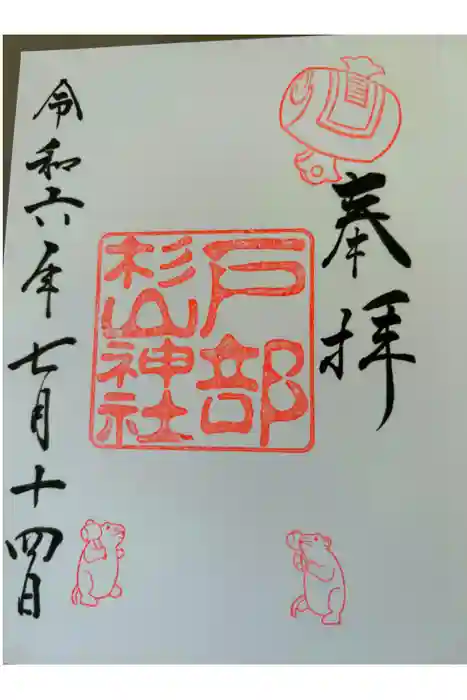 奉拝
戸部
杉山神社
令和六年七月十四日